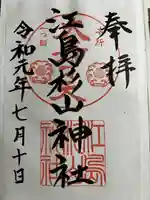 奉拝
江島杉山神社
令和元年七月十日